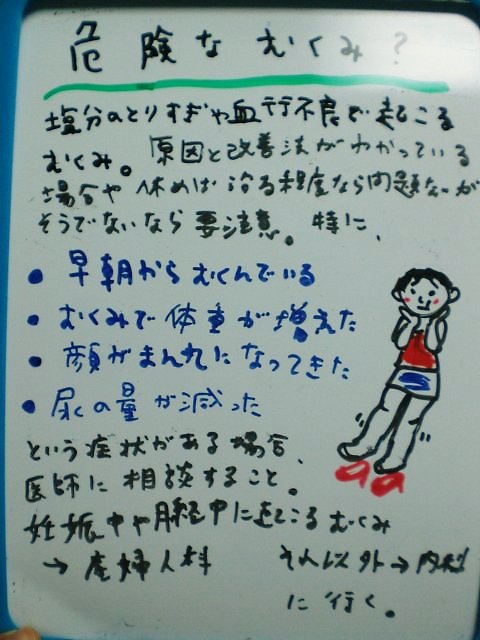 危険なむくみ？
塩分のとりすぎや血行不良で起こる
むくみ。原因と改善法がわかっている
場合や休めば治る程度なら問題ないが
そうでないなら要注意。特に、
• 早朝からむくんでいる
• むくみで体重が増えた
• 顔がまん丸になってきた
• 尿の量が減った
という症状がある場合、
医師に相談すること。
妊娠中や月経中に起こるむくみ
→産婦人科 それ以外→内科
に行く。